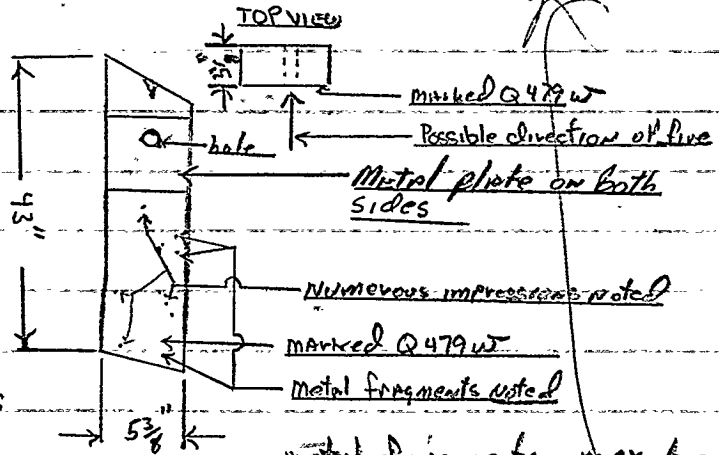 TOP VIEW
5/8"
marked Q479 W
Possible direction of fire
hole
Metal plate on both
sides
43"
Numerous impressions noted
marked Q479 W
Metal fragments noted
5 3/8"
metal